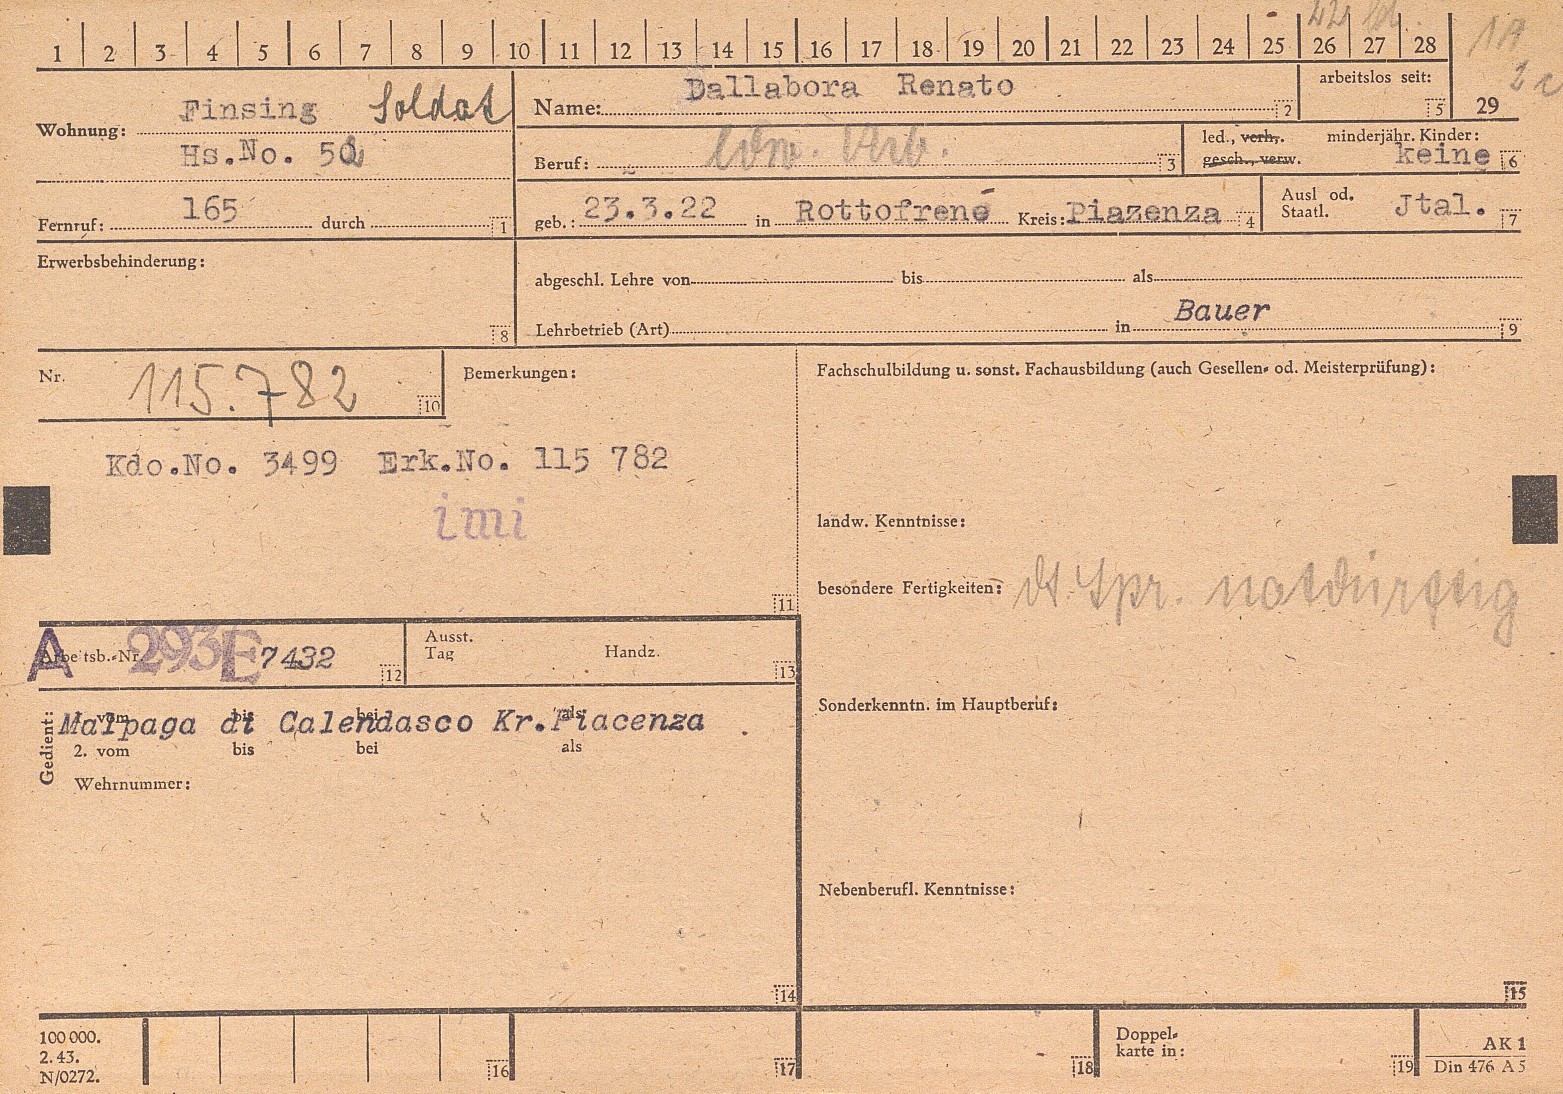 1 2 3 4 5 6 7 8 9 10 11 12 13 14 15 16 17 18 19 20 21 22 23 24 25 26 27 28
29
Wohnung: Finsing Soldat
Hs.No. 50
Fernruf: 165 durch 1
Name: Dallabora Renato 2
arbeitslos seit: 5
Beruf: ldw. Arb. 3
led., verh,.
gesch., verw.
minderjähr. Kinder:
keine 6
geb.: 23.3.22 in Rottofrené Kreis: Piazenza 4
Ausl od.
Staatl. Jtal. 7
Erwerbsbehinderung:
8
abgeschl. Lehre von bis als
Bauer
Lehrbetrieb (Art) in 9
Nr. 115.782 10
Bemerkungen:
Kdo.No. 3499 Erk.No. 115 782
imi
11
Fachschulbildung u. sonst. Fachausbildung (auch Gesellen- od. Meisterprüfung):
landw. Kenntnisse:
besondere Fertigkeiten: dt. Spr. notdürftig
A Arbeitsb.-Nr. 293E 7432 12
Ausst.
Tag Handz. 13
Gedient: vom bis bei als
Malpaga di Calendasco Kr.Piacenza
2. vom bis bei als
Wehrnummer:
14
Sonderkenntn. im Hauptberuf:
Nebenberufl. Kenntnisse:
15
100 000.
2. 43.
N/0272.
16 17 18
Doppel-
karte in:
19
AK 1
Din 476 A 5